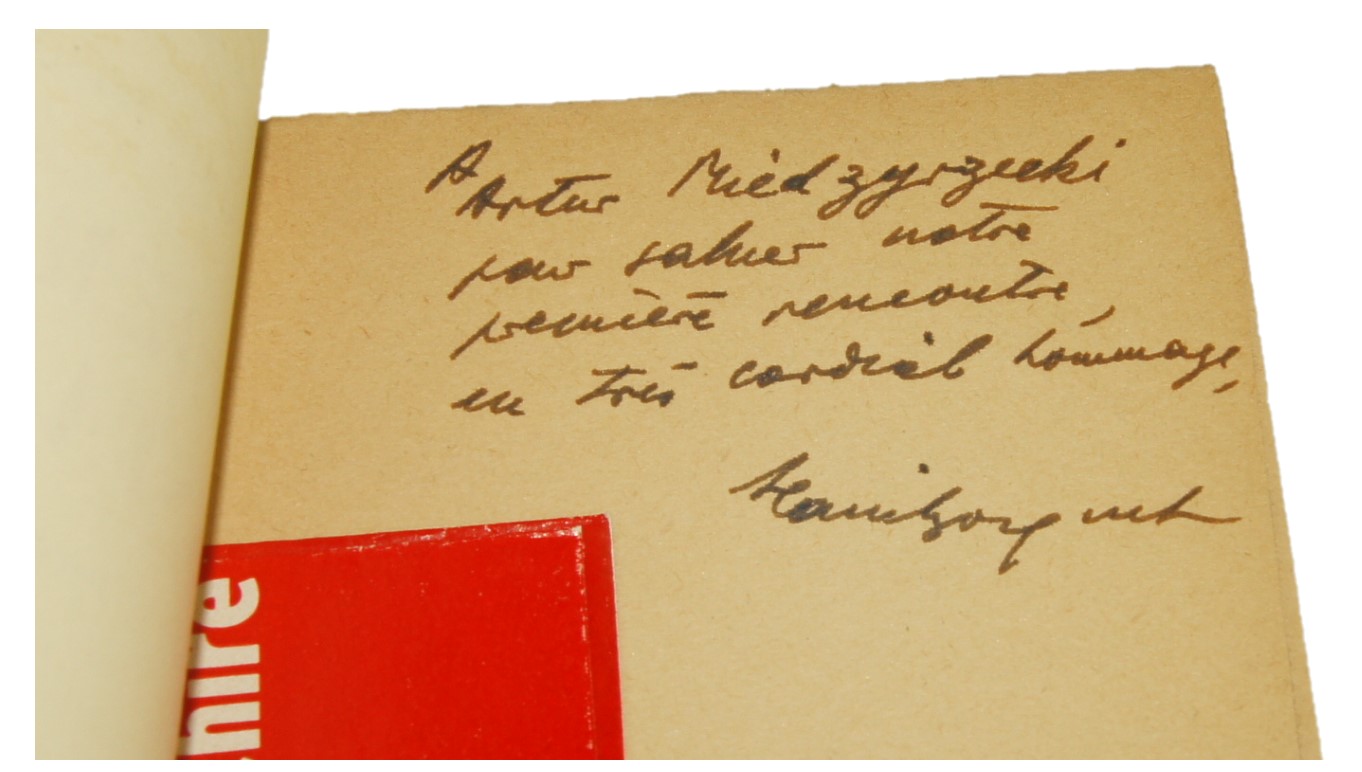 A
Artur Miedzyrzecki
pour saluer notre
première rencontre,
en très cordial hommage,
hire